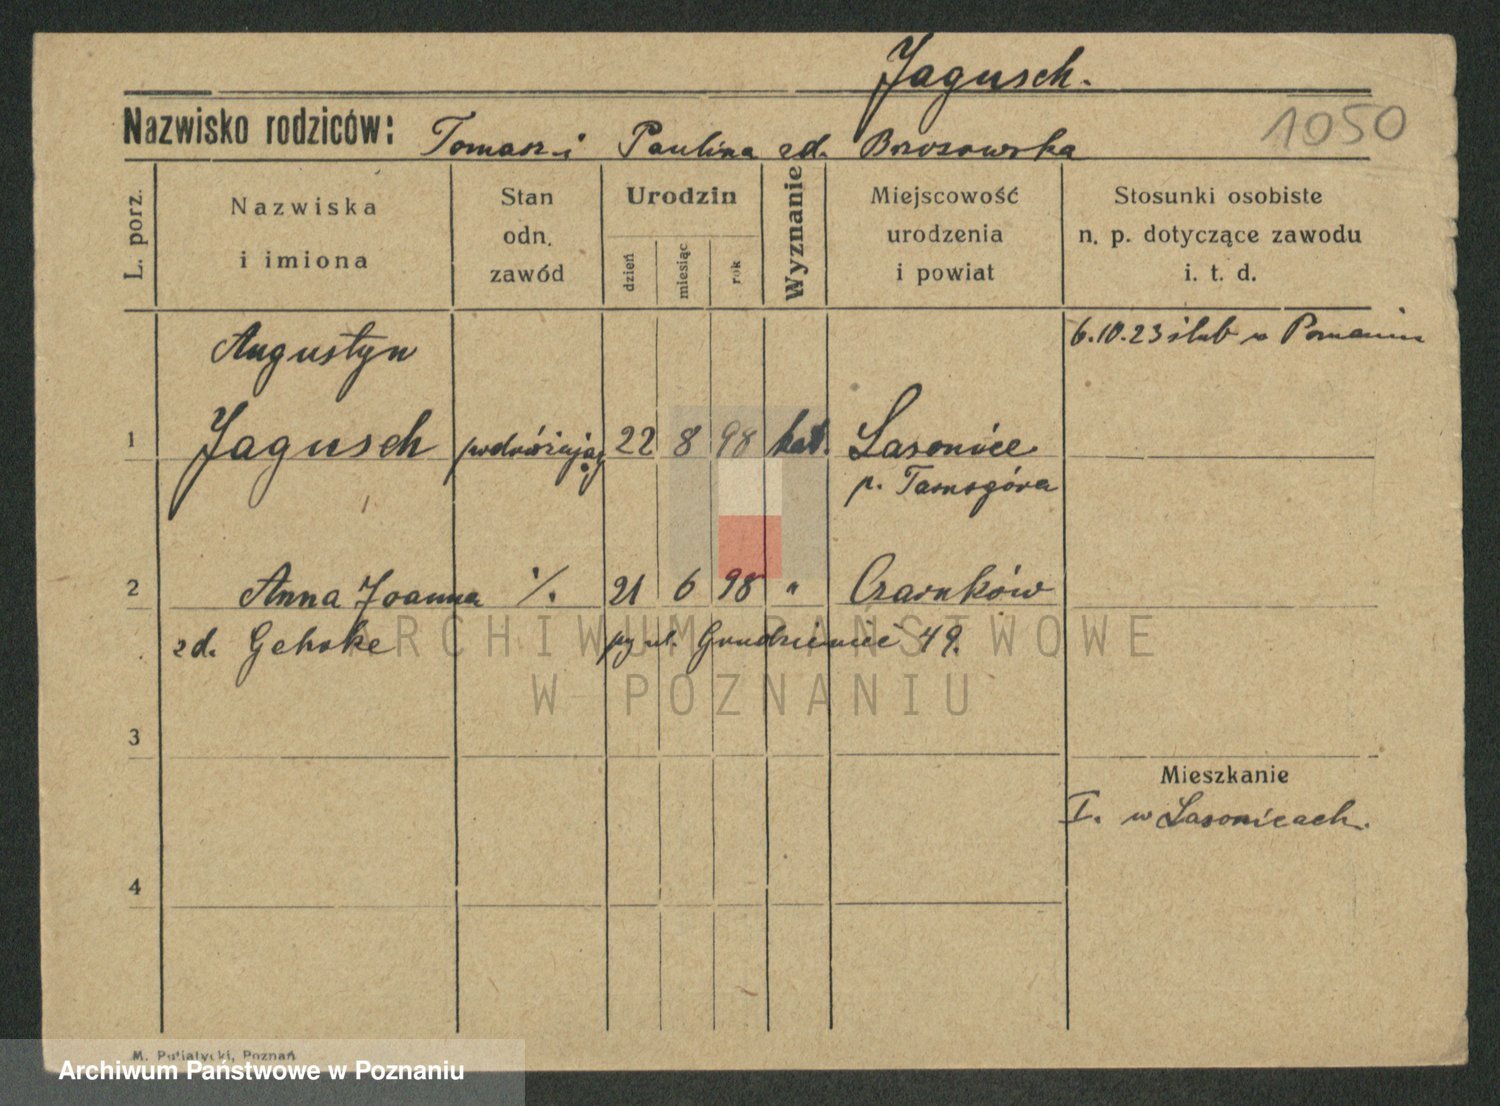 Jagusch.
1050
Nazwisko rodziców: Tomasz i Paulina zd. Brzozowska
L. porz.
Nazwiska i imiona
Stan odn. zawód
Urodzin
dzień miesiąc rok
Wyznanie
Miejscowość urodzenia i powiat
Stosunki osobiste n. p. dotyczące zawodu i. t. d.
6.10.23 ślub w Poznaniu
Augustyn
1 Jagusch podróżujący 22 8 98 kat. Lasowice
p. Tarnogóra
2 Anna Joanna ·/. 21 6 98 " Czarnków
zd. Gehrke ul. Grudzieniec 49.
ARCHIWUM PAŃSTWOWE
W POZNANIU
3
Mieszkanie
I. w Lasowicach.
4
M. Putiatycki, Poznań
Archiwum Państwowe w Poznaniu